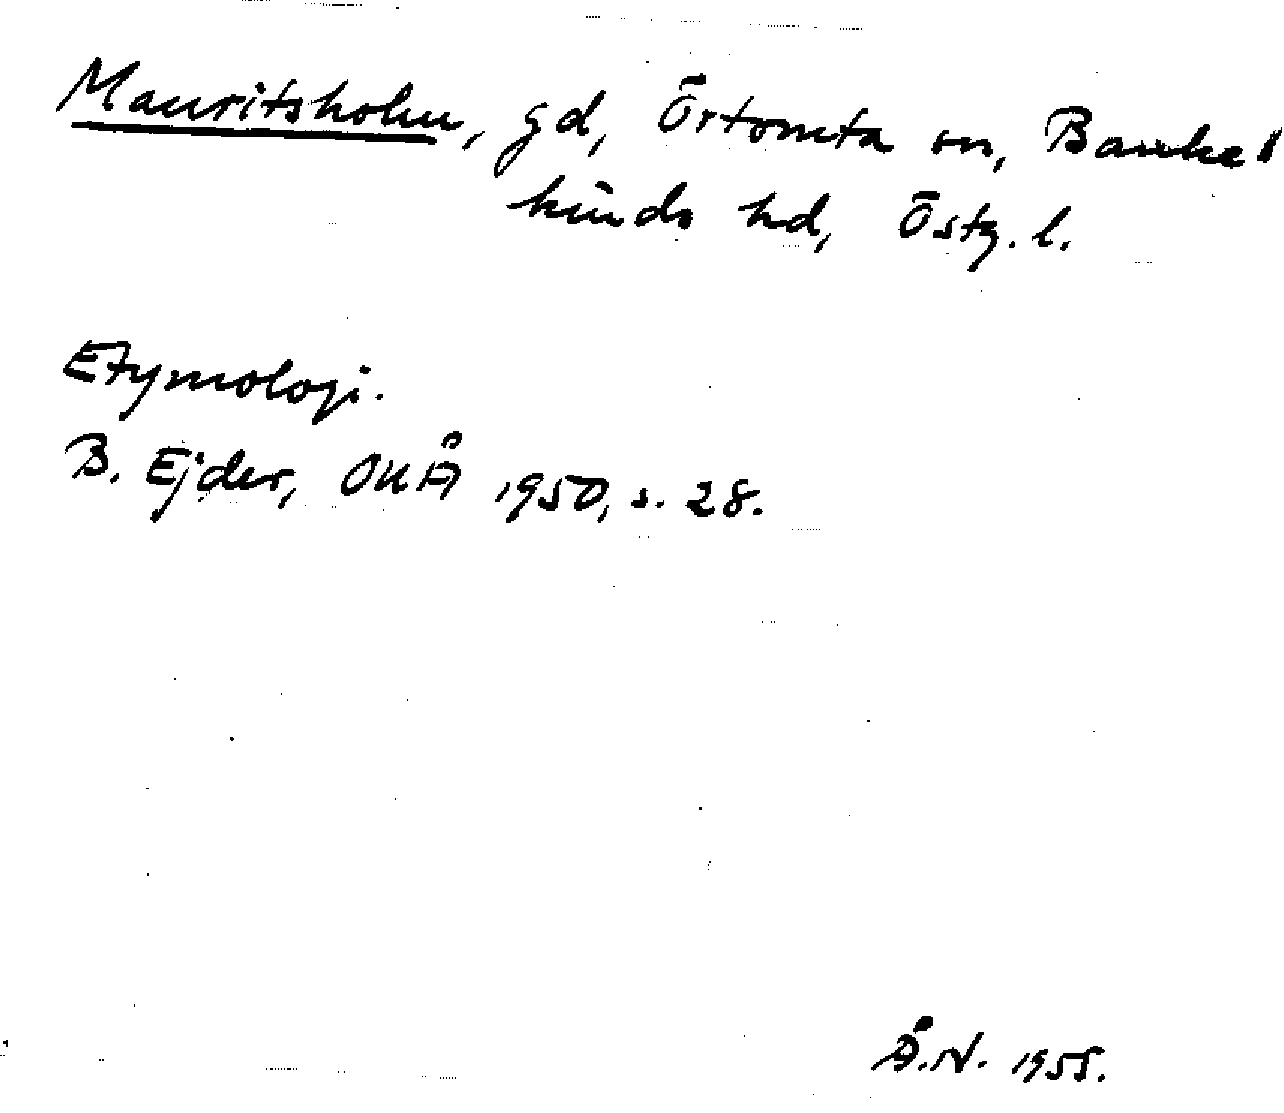 Mauritsholm, gd, Örtomta sn, Banke-
kinds hd, Östg. l.
Etymologi.
B. Ejder, OUÅ 1950, s. 28.
Å.N. 1955.